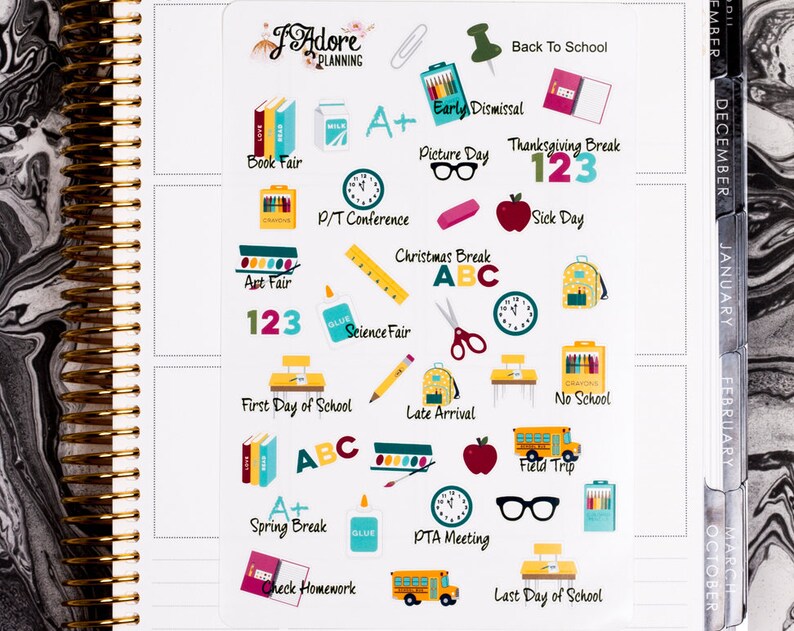 J'Adore
PLANNING
Back To School
Early Dismissal
LOVE
READ
MILK
A+
Book Fair
Picture Day
Thanksgiving Break
123
CRAYONS
P/T Conference
Sick Day
Art Fair
Christmas Break
ABC
123
GLUE
Science Fair
CRAYONS
First Day of School
Late Arrival
No School
LOVE
READ
ABC
SCHOOL BUS
Field Trip
A+
Spring Break
GLUE
PTA Meeting
Check Homework
SCHOOL BUS
Last Day of School
APRIL
NOVEMBER
DECEMBER
JANUARY
FEBRUARY
MARCH
OCTOBER